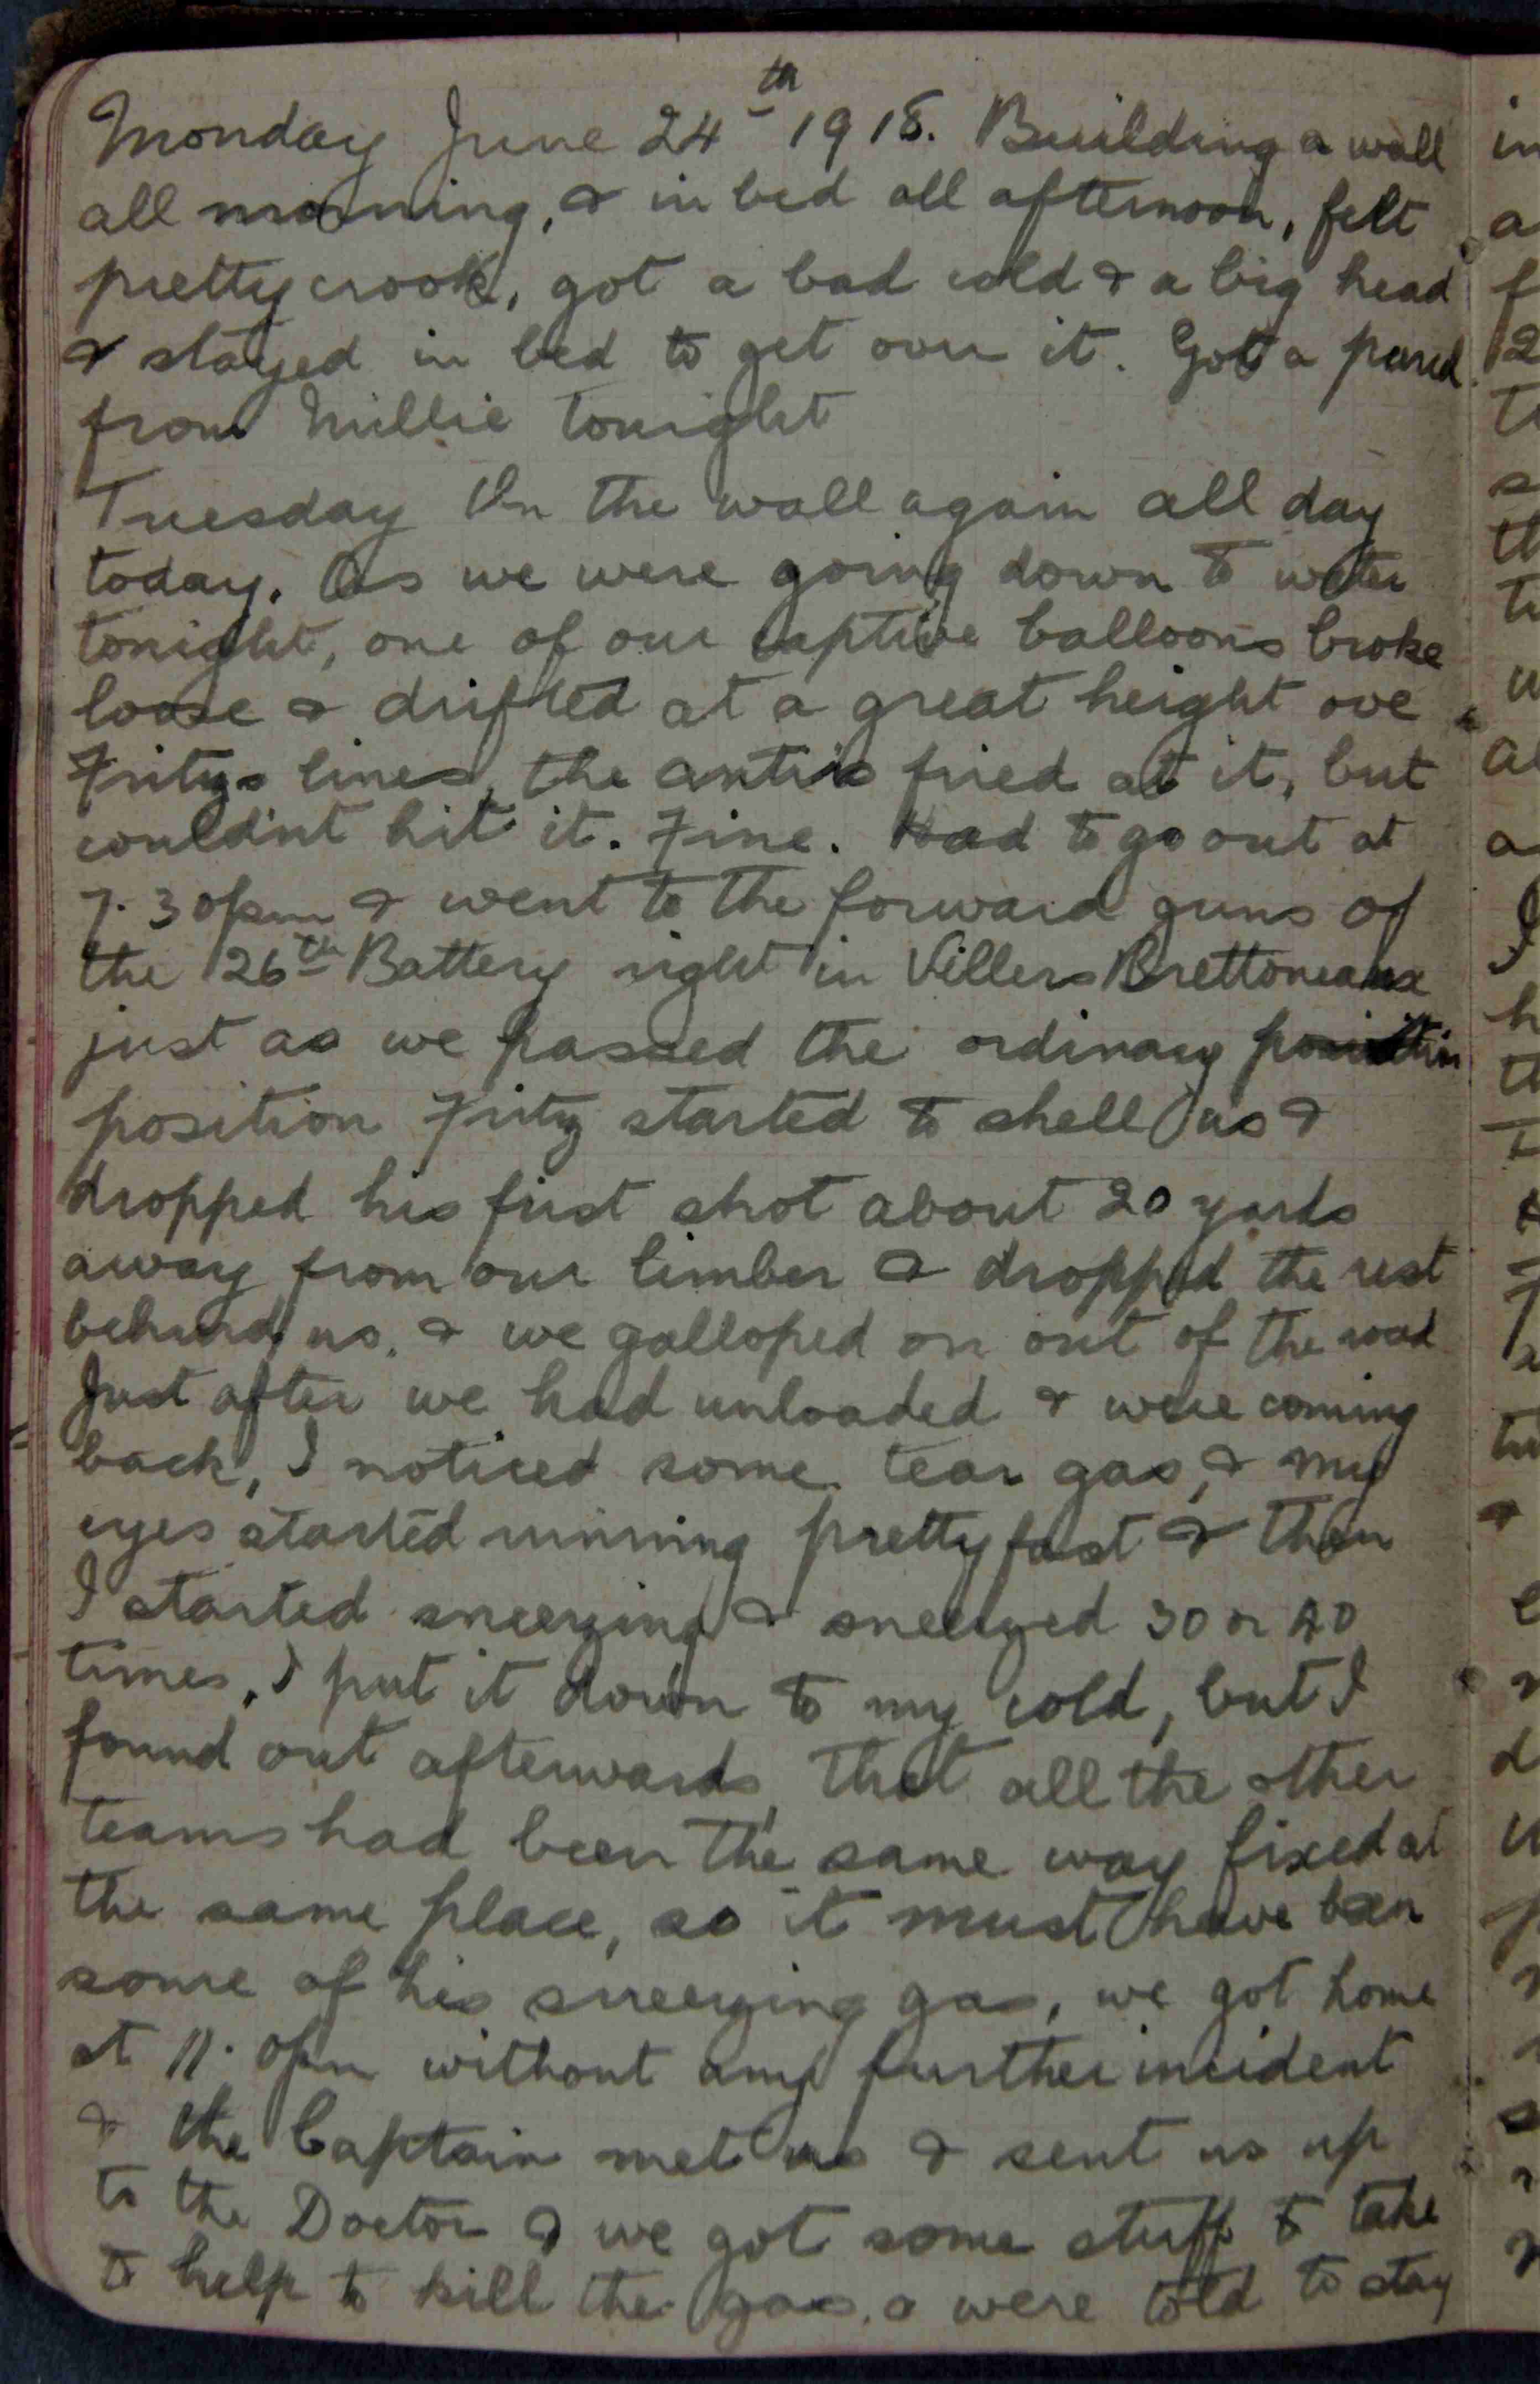 Monday June 24th 1918. Building a wall
all morning, & in bed all afternoon, felt
pretty crook, got a bad cold & a big head
& stayed in bed to get over it. Got a parcel
from Millie tonight
Tuesday On the wall again all day
today. As we were going down to water
tonight, one of our captive balloons broke
loose & drifted at a great height ove
Fritys lines, the antis fired at it, but
couldnt hit it. Fine. Had to go out at
7.30pm & went to the forward guns of
the 26th Battery right in Villers Brettoneaux
just as we passed the ordinary position
position Frity started to shell us &
dropped his first shot about 20 yards
away from our limber & dropped the rest
behind us, & we galloped on out of the road
Just after we had unloaded & were coming
back, I noticed some tear gas, & my
eyes started running pretty fast & then
I started sneezing & sneezed 30 or 40
times, I put it down to my cold, but I
found out afterwards, that all the other
teams had been the same way fixed at
the same place, so it must have been
some of his sneezing gas, we got home
at 11.0pm without any further incident
& the Captain met us & sent us up
to the Doctor & we got some stuff to take
to help to kill the gas, & were told to stay